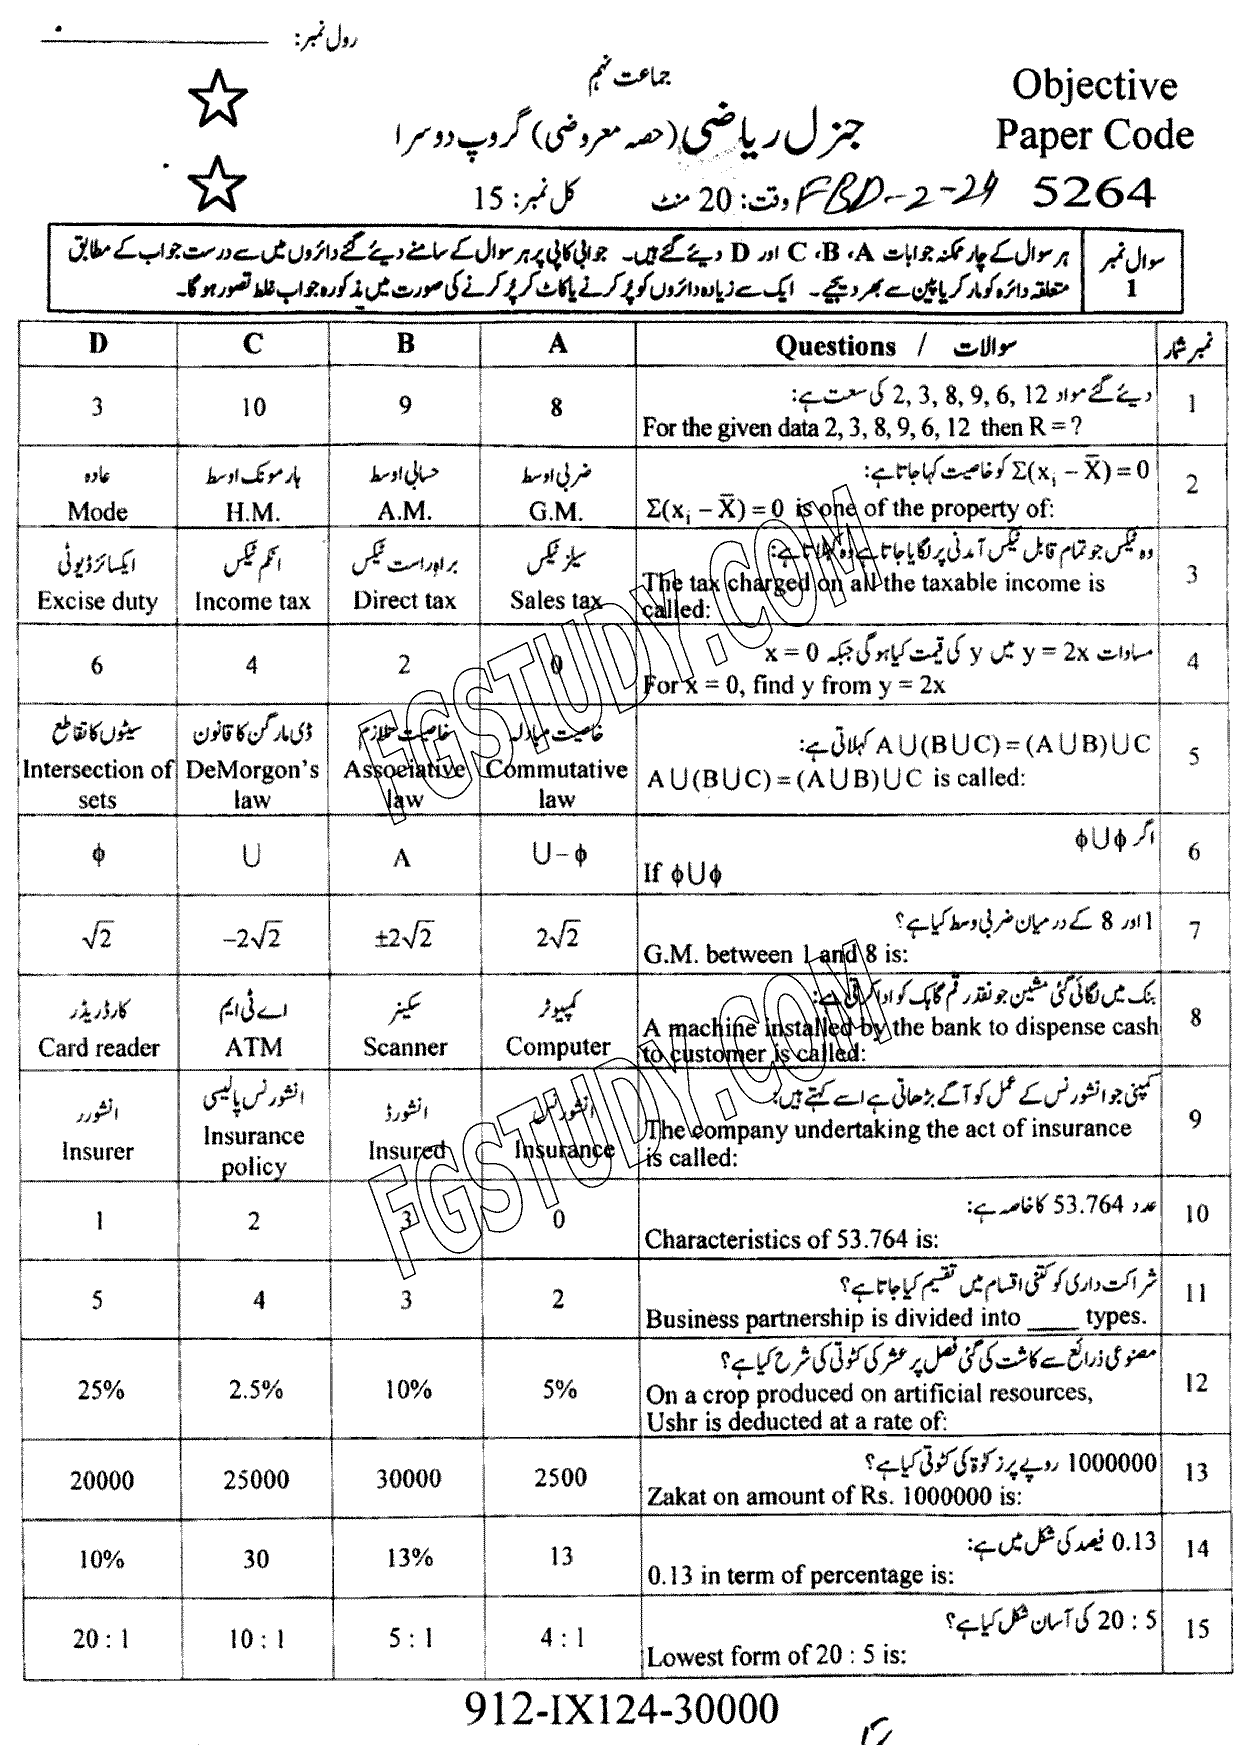 رول نمبر:
جماعت نہم
Objective
Paper Code
5264
جنرل ریاضی (حصہ معروضی) گروپ دوسرا
وقت: 20 منٹ
کل نمبر: 15
FBD-2-24
سوال نمبر 1
ہر سوال کے چار ممکنہ جوابات A، B، C اور D دیئے گئے ہیں۔ جوابی کاپی پر ہر سوال کے سامنے دیئے گئے دائروں میں سے درست جواب کے مطابق
متعلقہ دائرہ کو مارکر یا پین سے بھر دیجئے۔ ایک سے زیادہ دائروں کو پُر کرنے یا کاٹ کر پُر کرنے کی صورت میں مذکورہ جواب غلط تصور ہوگا۔
D C B A Questions / سوالات نمبر شمار
دیئے گئے مواد 2, 3, 8, 9, 6, 12 کی سعت ہے:
3 10 9 8 For the given data 2, 3, 8, 9, 6, 12 then R = ? 1
عادہ ہارمونک اوسط حسابی اوسط ضربی اوسط Σ(xᵢ – X̄) = 0 کو خاصیت کہا جاتا ہے:
Mode H.M. A.M. G.M. Σ(xᵢ – X̄) = 0 is one of the property of: 2
ایکسائز ڈیوٹی انکم ٹیکس براہ راست ٹیکس سیلز ٹیکس وہ ٹیکس جو تمام قابل ٹیکس آمدنی پر لگایا جاتا ہے وہ کہلاتا ہے:
Excise duty Income tax Direct tax Sales tax The tax charged on all the taxable income is
called: 3
مساوات y = 2x میں y کی قیمت کیا ہوگی جبکہ x = 0
6 4 2 0 For x = 0, find y from y = 2x 4
سیٹوں کا تقاطع ڈی مارگن کا قانون خاصیت تلازم خاصیت مبادلہ A∪(B∪C) = (A∪B)∪C کہلاتی ہے:
Intersection of sets DeMorgon's law Associative law Commutative law A∪(B∪C) = (A∪B)∪C is called: 5
اگر ϕ∪ϕ
ϕ U A U – ϕ If ϕ∪ϕ 6
1 اور 8 کے درمیان ضربی وسط کیا ہے؟
√2 –2√2 ±2√2 2√2 G.M. between 1 and 8 is: 7
کارڈ ریڈر اے ٹی ایم سکینر کمپیوٹر بنک میں لگائی گئی مشین جو نقد رقم گاہک کو ادا کرتی ہے:
Card reader ATM Scanner Computer A machine installed by the bank to dispense cash
to customer is called: 8
انشورر انشورنس پالیسی انشورڈ انشورنس کمپنی جو انشورنس کے عمل کو آگے بڑھاتی ہے اسے کہتے ہیں:
Insurer Insurance policy Insured Insurance The company undertaking the act of insurance
is called: 9
عدد 53.764 کا خاصہ ہے:
1 2 3 0 Characteristics of 53.764 is: 10
شراکت داری کو کتنی اقسام میں تقسیم کیا جاتا ہے؟
5 4 3 2 Business partnership is divided into ____ types. 11
مصنوعی ذرائع سے کاشت کی گئی فصل پر عشر کی کٹوتی کی شرح کیا ہے؟
25% 2.5% 10% 5% On a crop produced on artificial resources,
Ushr is deducted at a rate of: 12
1000000 روپے پر زکوٰۃ کی کٹوتی کیا ہے؟
20000 25000 30000 2500 Zakat on amount of Rs. 1000000 is: 13
0.13 فیصد کی شکل میں ہے:
10% 30 13% 13 0.13 in term of percentage is: 14
20 : 5 کی آسان شکل کیا ہے؟
20 : 1 10 : 1 5 : 1 4 : 1 Lowest form of 20 : 5 is: 15
912-IX124-30000
FGSTUDY.COM
FGSTUDY.COM